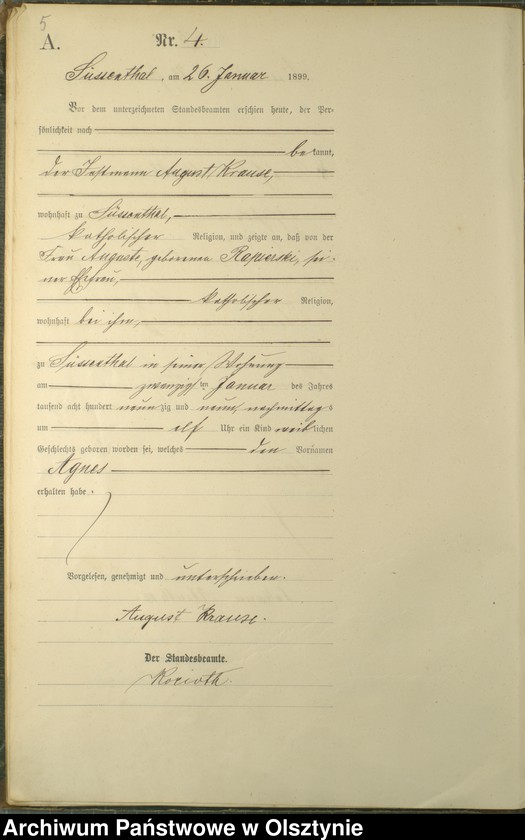 5
A.
Nr. 4.
Süssenthal, am 26. Januar 1899.
Vor dem unterzeichneten Standesbeamten erschien heute, der Per-
sönlichkeit nach
bekannt,
der Instmann August Krause,
wohnhaft zu Süssenthal,
katholischer Religion, und zeigte an, daß von der
Frau Auguste, geborenen Rapierski, sei-
ner Ehefrau,
katholischer Religion,
wohnhaft bei ihm,
zu Süssenthal in seiner Wohnung
am zwanzigsten Januar des Jahres
tausend acht hundert neunzig und neun, nachmittags
um elf Uhr ein Kind weiblichen
Geschlechts geboren worden sei, welches den Vornamen
Agnes
erhalten habe.
Vorgelesen, genehmigt und unterschrieben.
August Krause.
Der Standesbeamte.
Archiwum Państwowe w Olsztynie